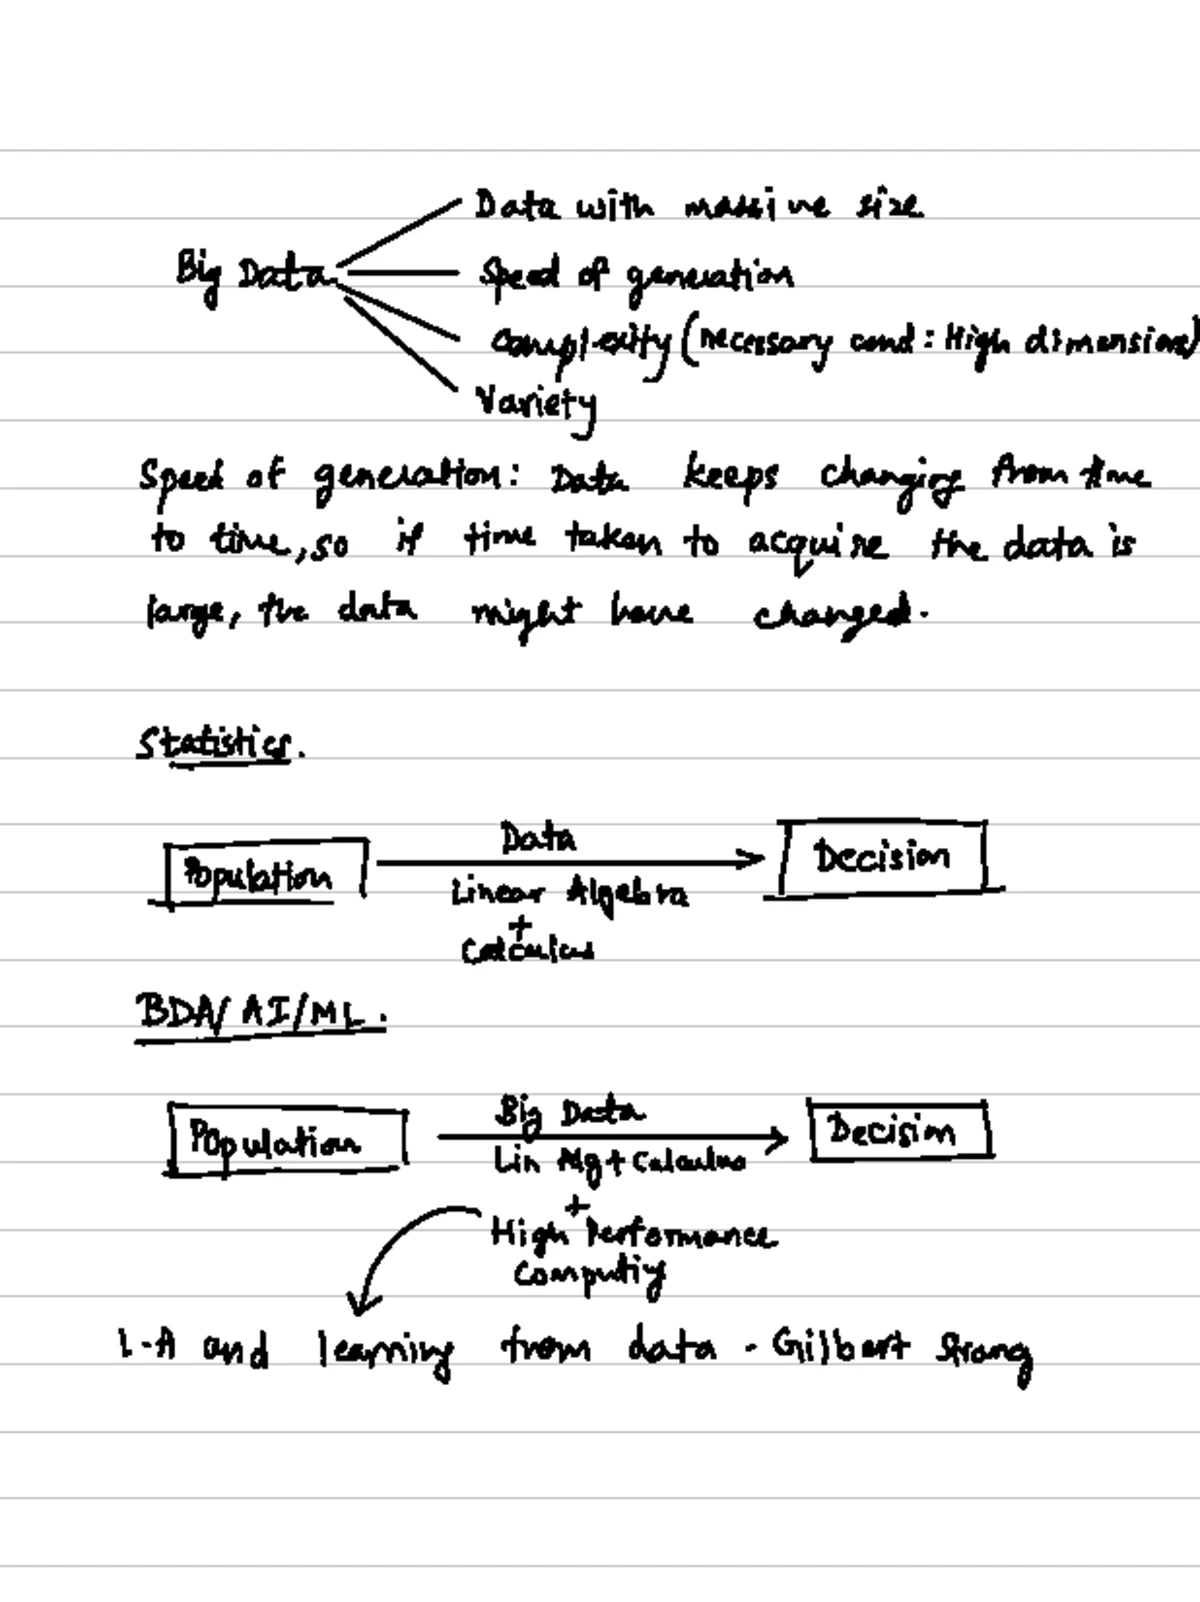 Data with massive size
Big Data
Speed of generation
Complexity (necessary cond: High dimensions)
Variety
Speed of generation: Data keeps changing from time
to time, so if time taken to acquire the data is
large, the data might have changed.
Statistics.
Population
Data
Linear Algebra
+
Calculus
Decision
BDA/AI/ML.
Population
Big Data
Lin Alg + Calculus
+
High Performance
Computing
Decision
L-A and learning from data - Gilbert Strang